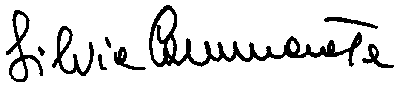 Silvia Cammarota